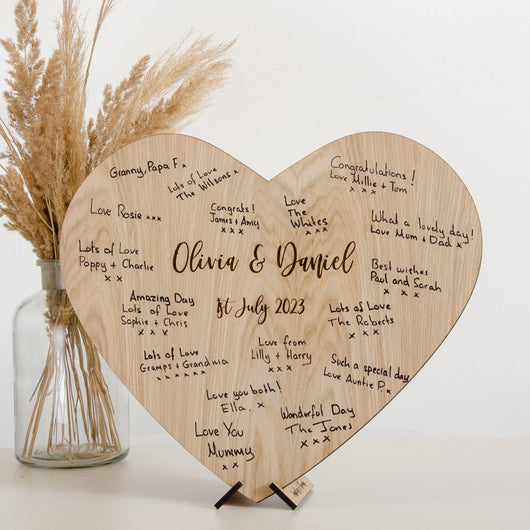 Granny, Papa F x
Lots of Love
The Wilsons x
Congratulations!
Love Millie + Tom
x x x x
Love Rosie x x x
Congrats!
James + Amy
x x x x
Love
The
Whites
x x x x
What a lovely day!
Love Mum + Dad x
x
Lots of Love
Poppy + Charlie
x x
Olivia & Daniel
1st July 2023
Best wishes
Paul and Sarah
x x x x
Amazing Day
Lots of Love
Sophie + Chris
x x x
Lots of Love
The Roberts
x x x x
Lots of Love
Gramps + Grandma
x x x x x x
Love from
Lilly + Harry
x x x x
Such a special day
Love Auntie P. x
x x
Love you both!
Ella. x
Wonderful Day
The Jones
x x x
Love You
Mummy
x x